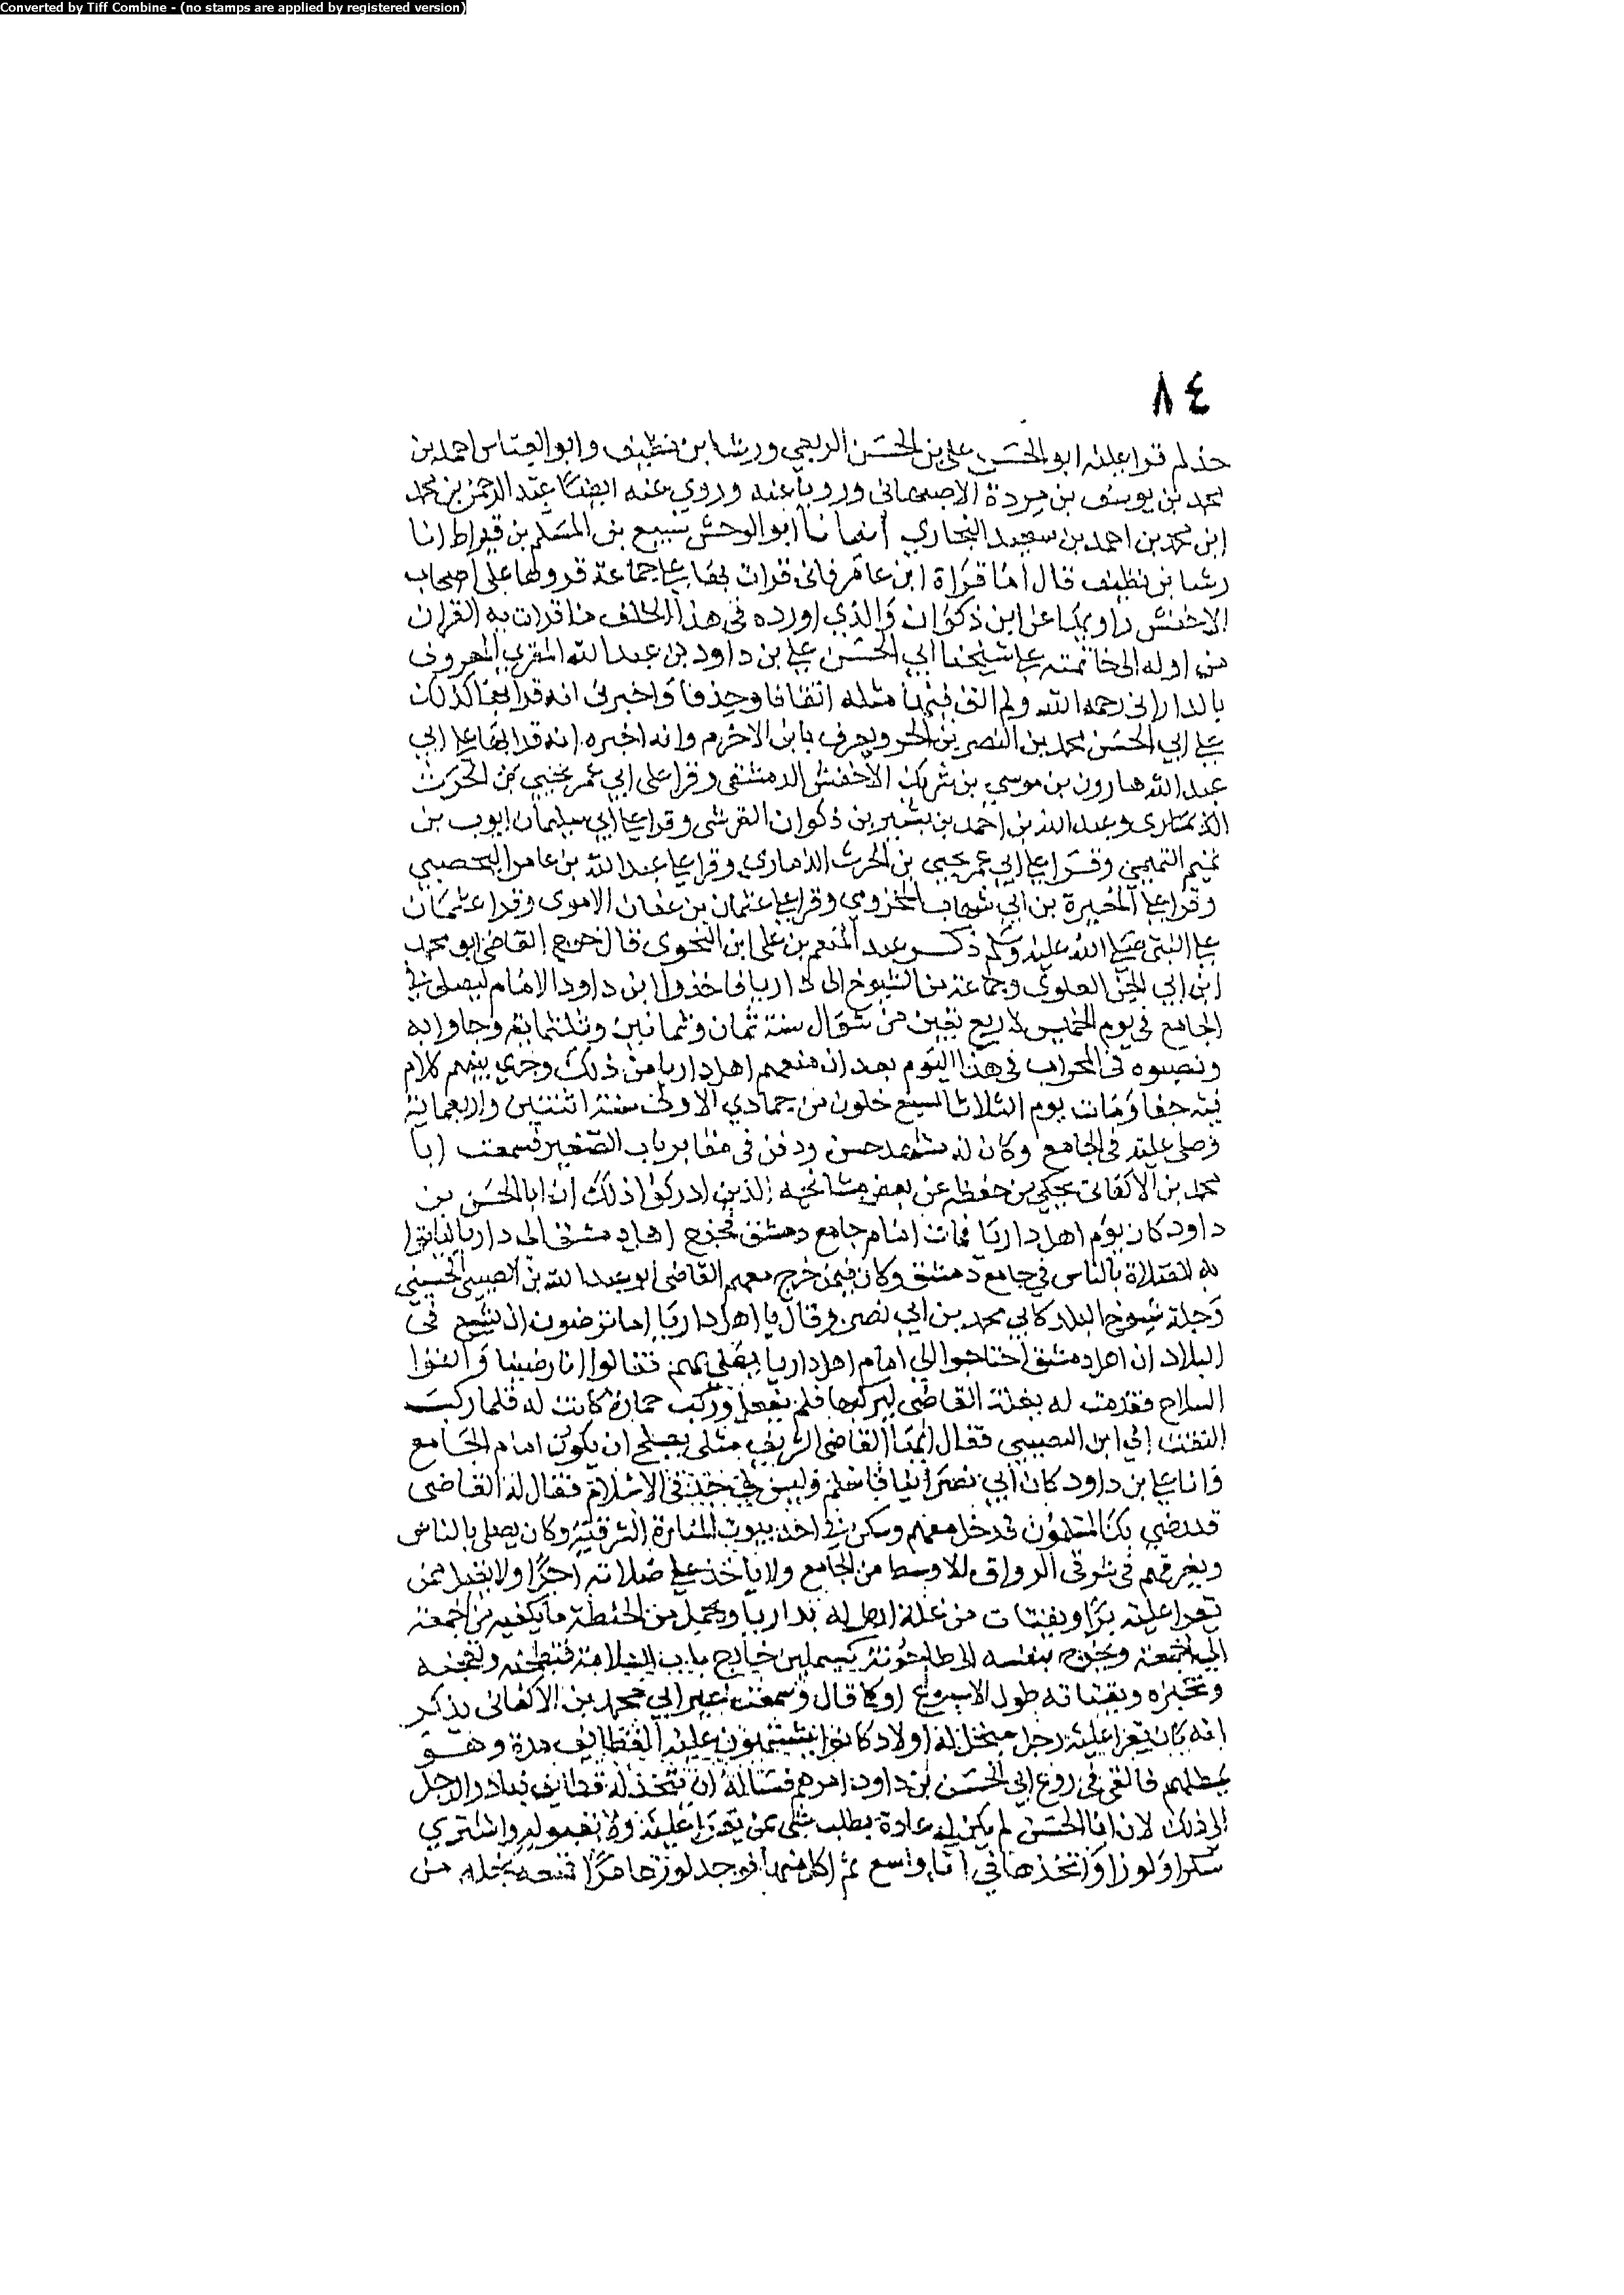 Converted by Tiff Combine - (no stamps are applied by registered version)
٨٤
حذلم قرا عليه ابو الحسن علي بن الحسن الربعي ورشا بن نظيف وابو العباس احمد بن
محمد بن يوسف بن مردة الاصبهاني ورويا عنه وروي عنه ايضا عبد الرحمن بن محمد
ابن محمد بن احمد بن سعيد البخاري انبانا ابو الوحش سبيع بن المسلم بن قيراط انا
رشا بن نظيف قال اما قراة ابن عامر فاني قرات بها على جماعة قروا بها على اصحاب
الاخفش راويها عن ابن ذكوان والذي اورده في هذا الخلف ما قرات به القران
من اوله الى خاتمته على شيخنا ابي الحسن علي بن داود بن عبد الله المقري المعروف
بالداراني رحمه الله ولم الق فيها مثله اتقانا وحذقا واخبرني انه قرا بها كذلك
على ابي الحسن محمد بن النصر بن الحر ويعرف بابن الاخرم وانه اخبره انه قرا بها على ابي
عبد الله هارون بن موسي بن شريك الاخفش الدمشقي وقرا على ابي عمر يحيي بن الحرث
الذماري وعبد الله بن احمد بن بشير بن ذكوان القرشي وقرا على ابي سليمان ايوب بن
تميم التميمي وقرا على ابي عمر يحيي بن الحرث الذماري وقرا على عبد الله بن عامر اليحصبي
وقرا على المغيرة بن ابي شهاب المخزومي وقرا على عثمان بن عفان الاموي وقرا عثمان
على النبي صلى الله عليه وسلم ذكر عبد المنعم بن علي ابن النحوي قال خرج القاضي ابو محمد
ابن ابي الجن العلوي وجماعة من الشيوخ الى داريا فاخذوا ابن داود الامام ليصلي في
الجامع في يوم الخميس لاربع بقين من شوال سنة ثمان وثمانين وثلثماية وجاوا به
ونصبوه في المحراب في هذا اليوم بعد ان منعهم اهل داريا من ذلك وجري بينهم كلام
فيه جفا ومات يوم الثلاثا لسبع خلون من جمادي الاولى سنة اثنتين واربعماية
وصلى عليه في الجامع وكان له مشهد حسن ودفن في مقابر باب الصغير سمعت ابا
محمد بن الاكفاني يحكي من حفظه عن بعض مشايخه الذين ادركوا ذلك ان ابا الحسن بن
داود كان يوم اهل داريا فمات امام جامع دمشق فخرج اهل دمشق الى داريا لياتوا
به للصلاة بالناس في جامع دمشق وكان فيمن خرج معهم القاضي ابو عبد الله بن النصيبي الحسيني
وجلة شيوخ البلد كابي محمد بن ابي نصر وقال يا اهل داريا اما ترضون ان يشيع في
البلاد ان اهل دمشق احتاجوا الي امام اهل داريا يصلي بهم فقالوا انا رضينا والقوا
السلاح فقدمت له بغلة القاضي ليركبها فلم يفعل وركب حمارة كانت له فلما ركب
التفت الي ابن النصيبي فقال ايها القاضي الشريف مثلي يصلح ان يكون امام الجامع
وانا علي بن داود كان ابي نصرانيا فاسلم وليس لي جد في الاسلام فقال له القاضي
قد رضي بك المسلمون فدخل معهم وسكن في احد بيوت المنارة الشرقية وكان يصلي بالناس
ويقريهم في شرقي الرواق الاوسط من الجامع ولا ياخذ على صلاته اجرا ولا يقبل ممن
يقرا عليه برا ويقتات من غلة ارض له بداريا ويحمل من الحنطة ما يكفيه من الجمعة
الي الجمعة ويخرج بنفسه الى طاحونة كسملين خارج باب السلامة فيطحنه ويعجنه
ويخبزه ويقتاته طول الاسبوع او كما قال وسمعت غير ابي محمد بن الاكفاني يذكر
انه كان يقرا عليه رجل مبخل له اولاد كانوا يشتهون عليه القطايف مدة وهو
يمطلهم فالقي في روع ابي الحسن بن داود امرهم فساله ان يتخذ له قطايف فبادر الرجل
الى ذلك لان ابا الحسن لم يكن له عادة بطلب شي ممن يقرا عليه ولا بقبوله واشتري
سكرا ولوزا واتخذها في انا واسع ثم اكل منها فوجد لوزها مرا فمنعه بخله من